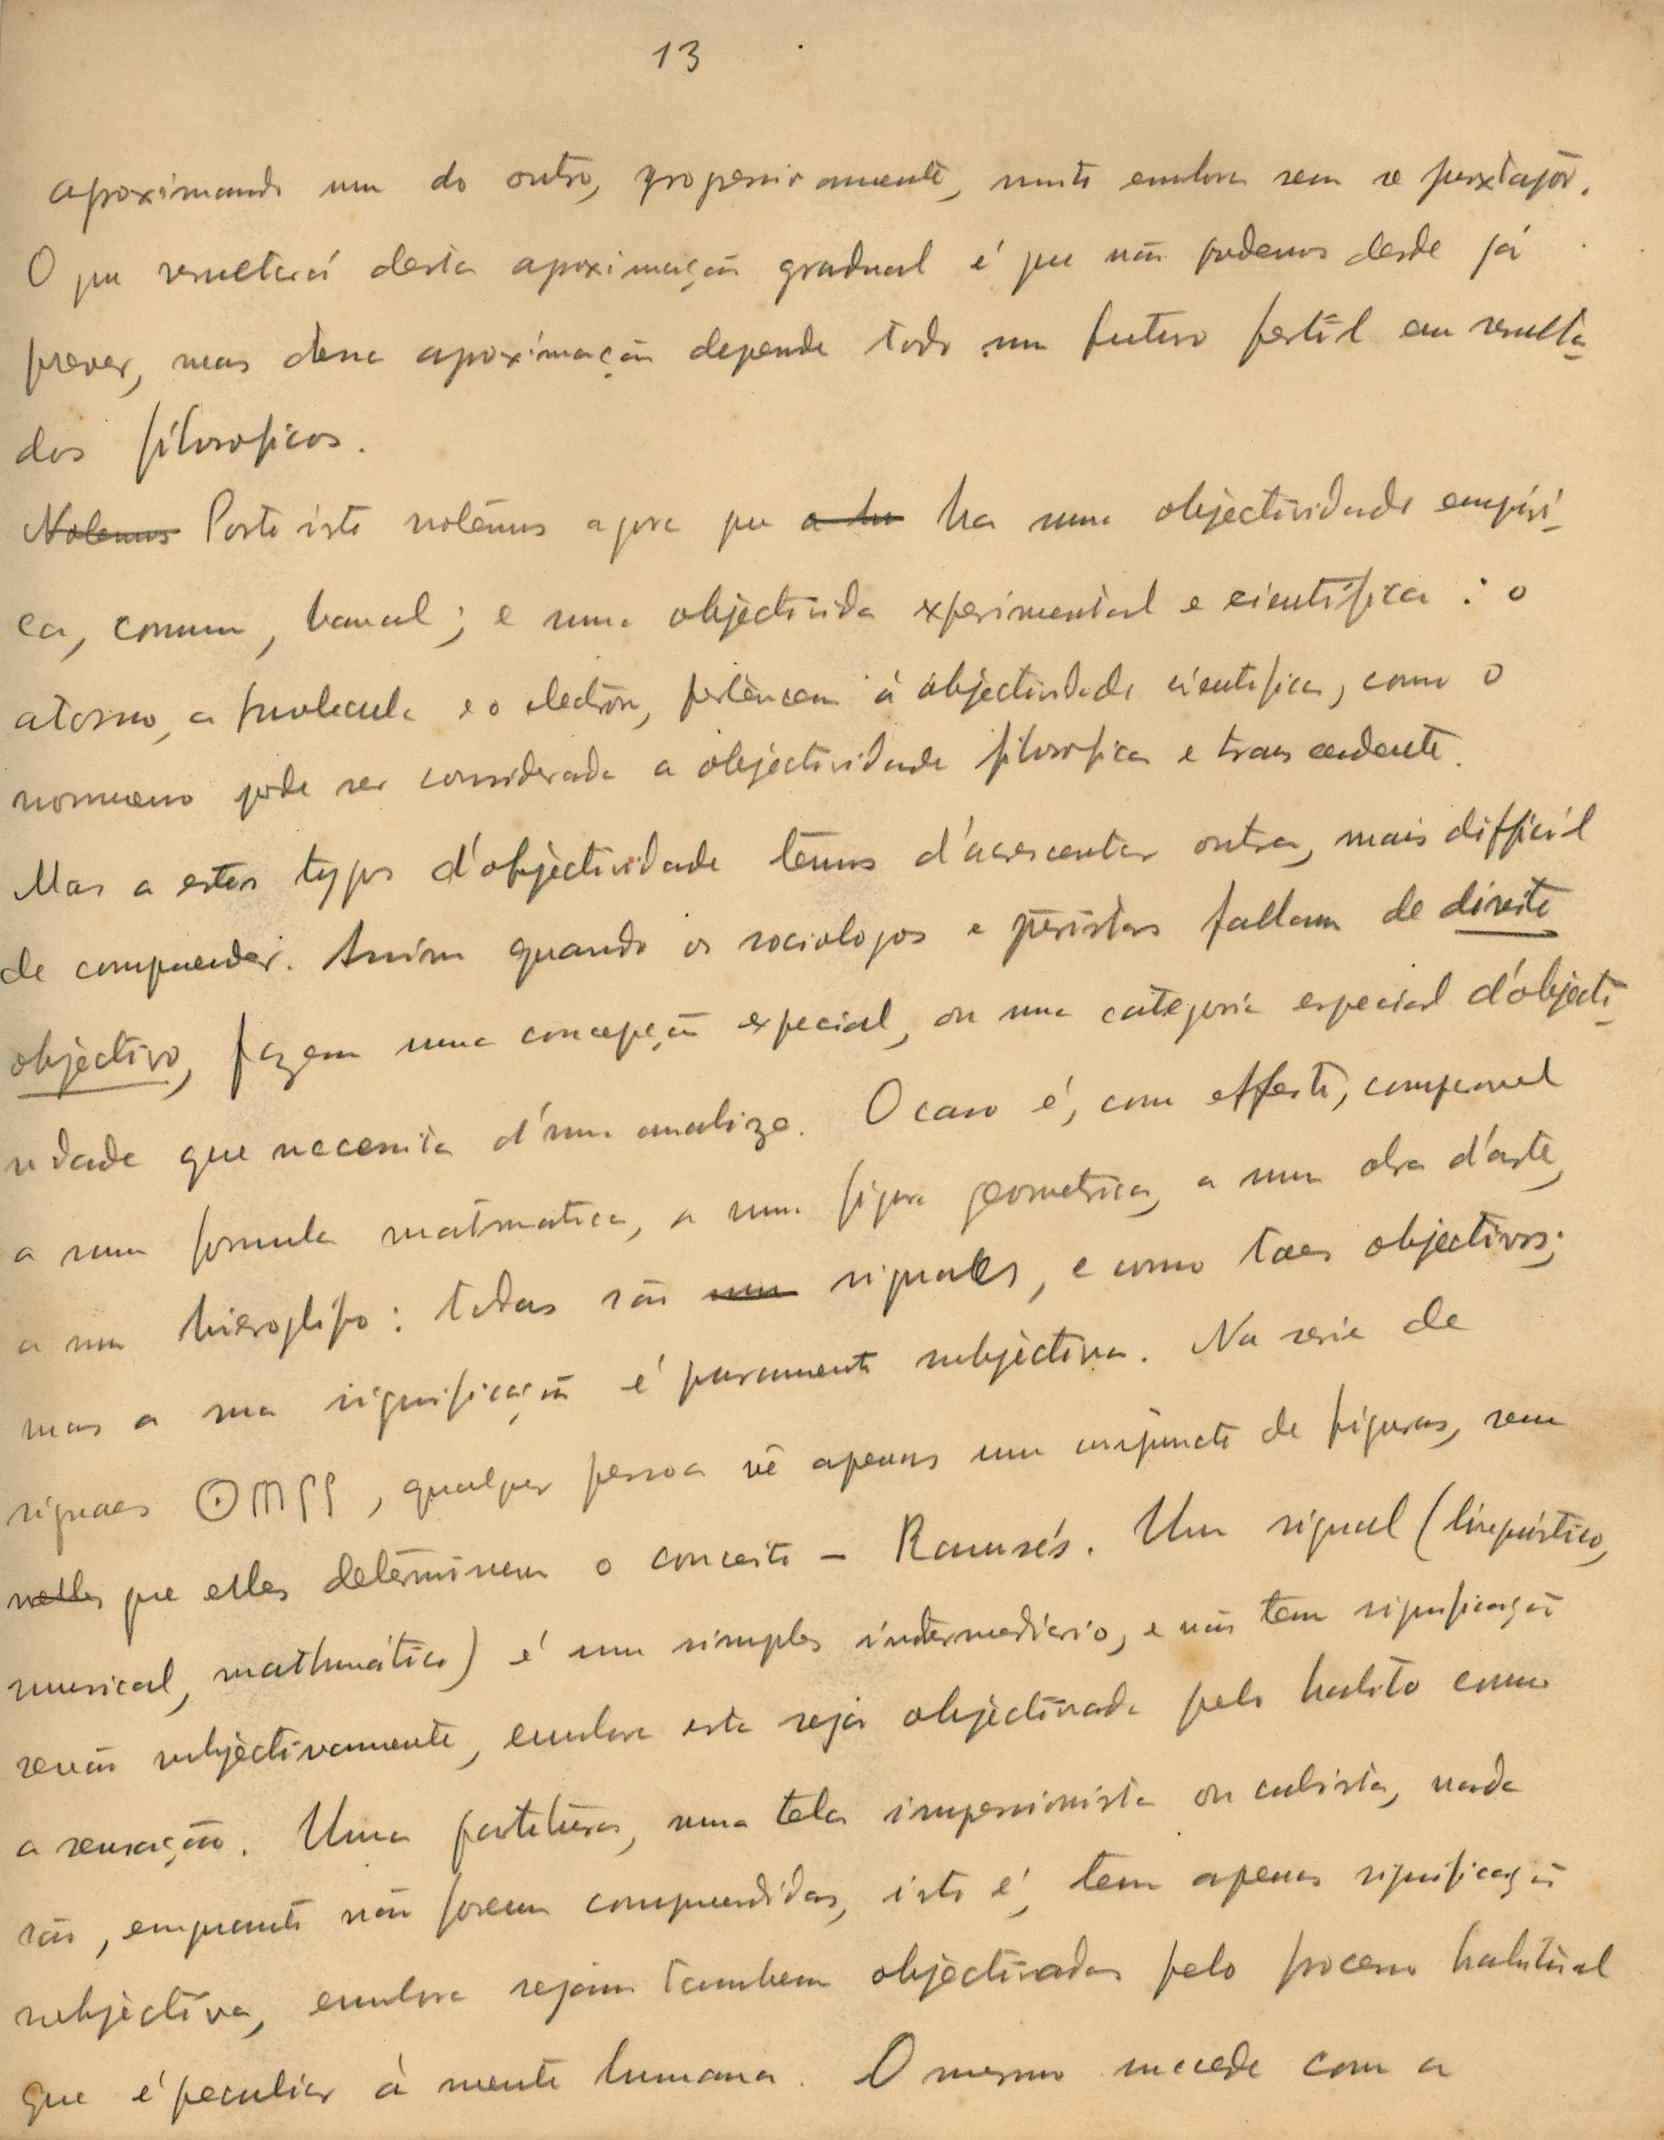 13
aproximando um do outro, progressivamente, muito embora sem se juxtapôr.
O que resultará desta aproximação gradual é que não podemos desde já
prever, mas dessa aproximação depende todo um futuro fertil em resulta-
dos filosoficos.
Notemos Posto isto notêmos agora que a ha uma objectividade empiri-
ca, comum, banal; e uma objectivida experimental e cientifica: o
atomo, a molecula e o electron, pertencem á objectividade cientifica, como o
noumeno pode ser considerado a objectividade filosofica e transcendente.
Mas a estes typos d'objectividade temos d'acrescentar outra, mais difficil
de comprender. Assim quando os sociologos e juristas fallam de direito
objectivo, fazem uma concepção especial, ou uma categoria especial d'objecti-
vidade que necessita d'uma analize. O caso é, com effeito, comparavel
a uma formula matmatica, a uma figura geometrica, a uma obra d'arte,
a um hieroglifo: todas são um signaes, e como taes objectivos;
mas a sua significação é puramente subjectiva. Na serie de
signaes ☉𓄟𓋴𓋴, qualquer pessoa vê apenas um conjuncto de figuras, sem
nelles que elles determinem o conceito – Ramsés. Um signal (linguistico,
musical, mathmático) é um simples intermediario, e não tem significação
senão subjectivamente, embora esta seja objectivada pelo habito como
a sensação. Uma partitura, uma tela impressionista ou cubista, nada
são, emquanto não forem comprendidas, isto é, tem apenas significação
subjectiva, embora sejam tambem objectivadas pelo processo habitual
que é peculiar á mente humana. O mesmo succede com a